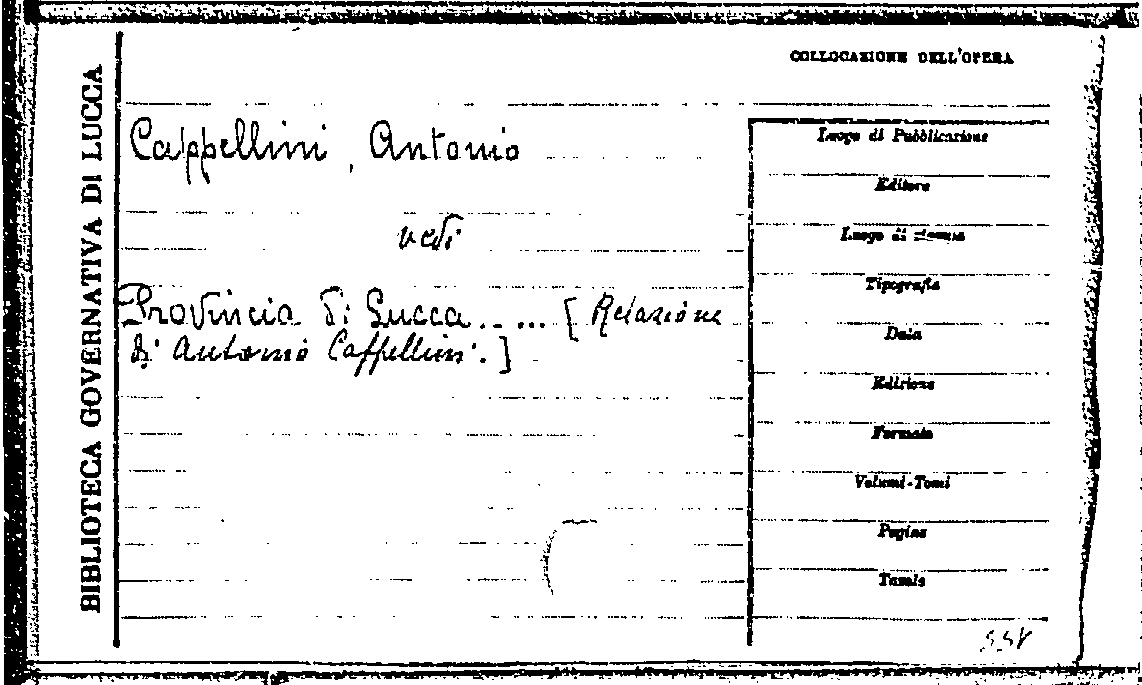 BIBLIOTECA GOVERNATIVA DI LUCCA
COLLOCAZIONE DELL'OPERA
Cappellini, Antonio
vedi
Provincia di Lucca..... [Relazione
di Antonio Cappellini.]
Luogo di Pubblicazione
Editore
Luogo di stampa
Tipografia
Data
Edizione
Formato
Volumi-Tomi
Pagine
Tavole